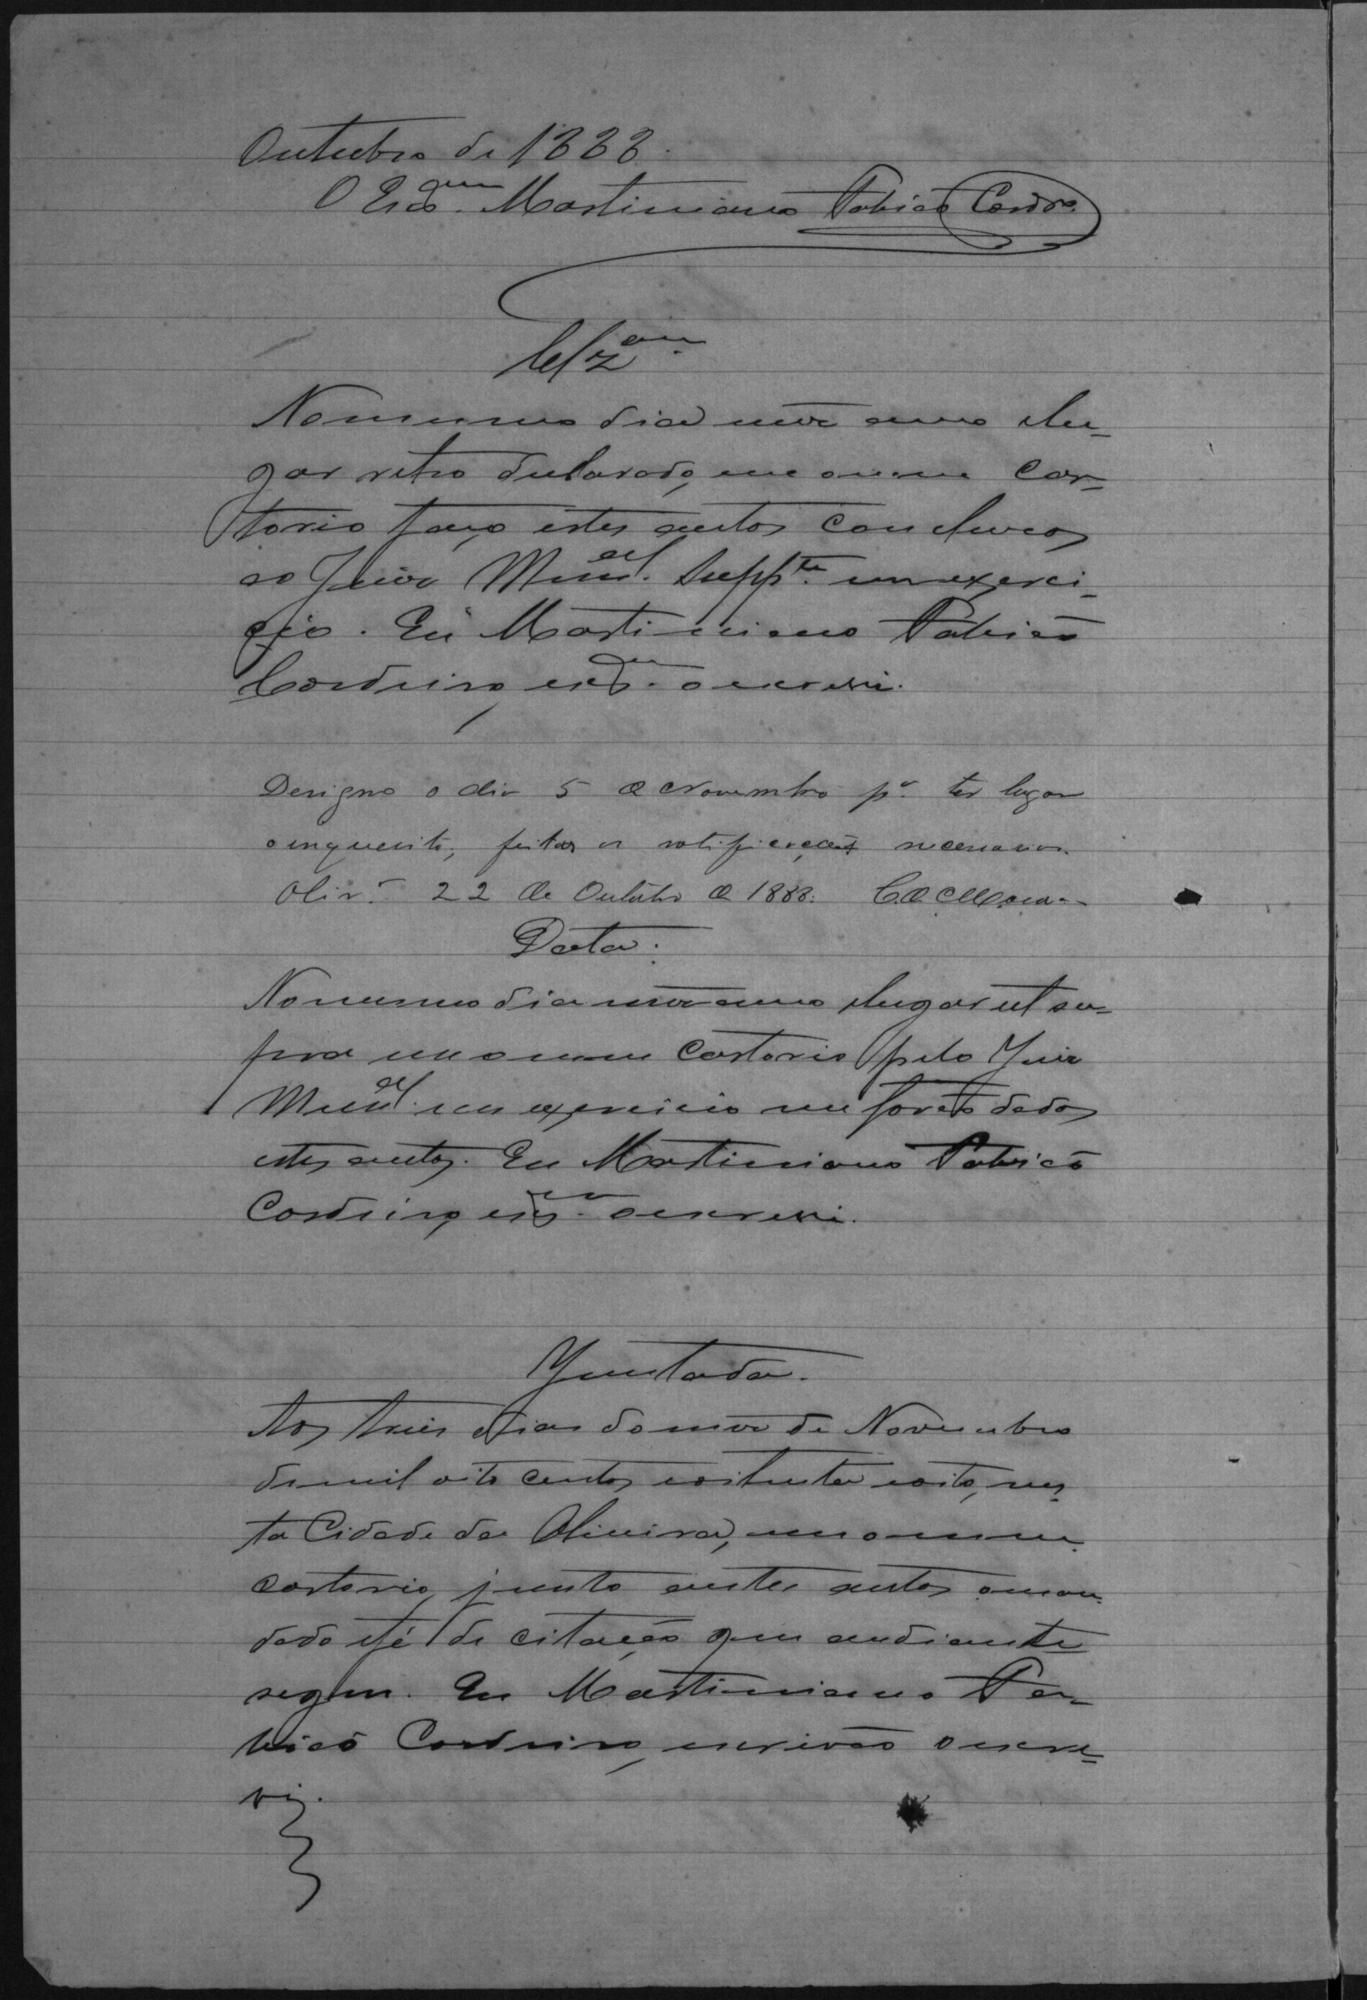 Outubro de 1888.
O Escr.am Martiniano Fabião Cordro.
Clzam.
No mesmo dia mez anno e lu-
gar retro declarado, em o meu car-
torio faço estes autos conclusos
ao Juiz Munal. Suppte. em exerci-
cio. Eu Martiniano Fabião
Cordeiro, escram. o escrevi.
Designo o dia 5 de Novembro pa. ter lugar
o inquerito, feitas as notificações necessarias.
Olivra. 22 de Outubro de 1888.
Data.
No mesmo dia mez anno e lugar ut su-
pra em o meu cartorio pelo Juiz
Munal. em exercicio me forão dados
estes autos. Eu Martiniano Fabião
Cordeiro, escram. o escrevi.
Juntada.
Aos tres dias do mez de Novembro
de mil oito centos e oitenta e oito, nes-
ta Cidade da Oliveira, em o meu
cartorio, junto a estes autos o man-
dado e fé de citação que a adiante
segue. Eu Martiniano Fa-
bião Cordeiro, escrivão o escre-
vi.